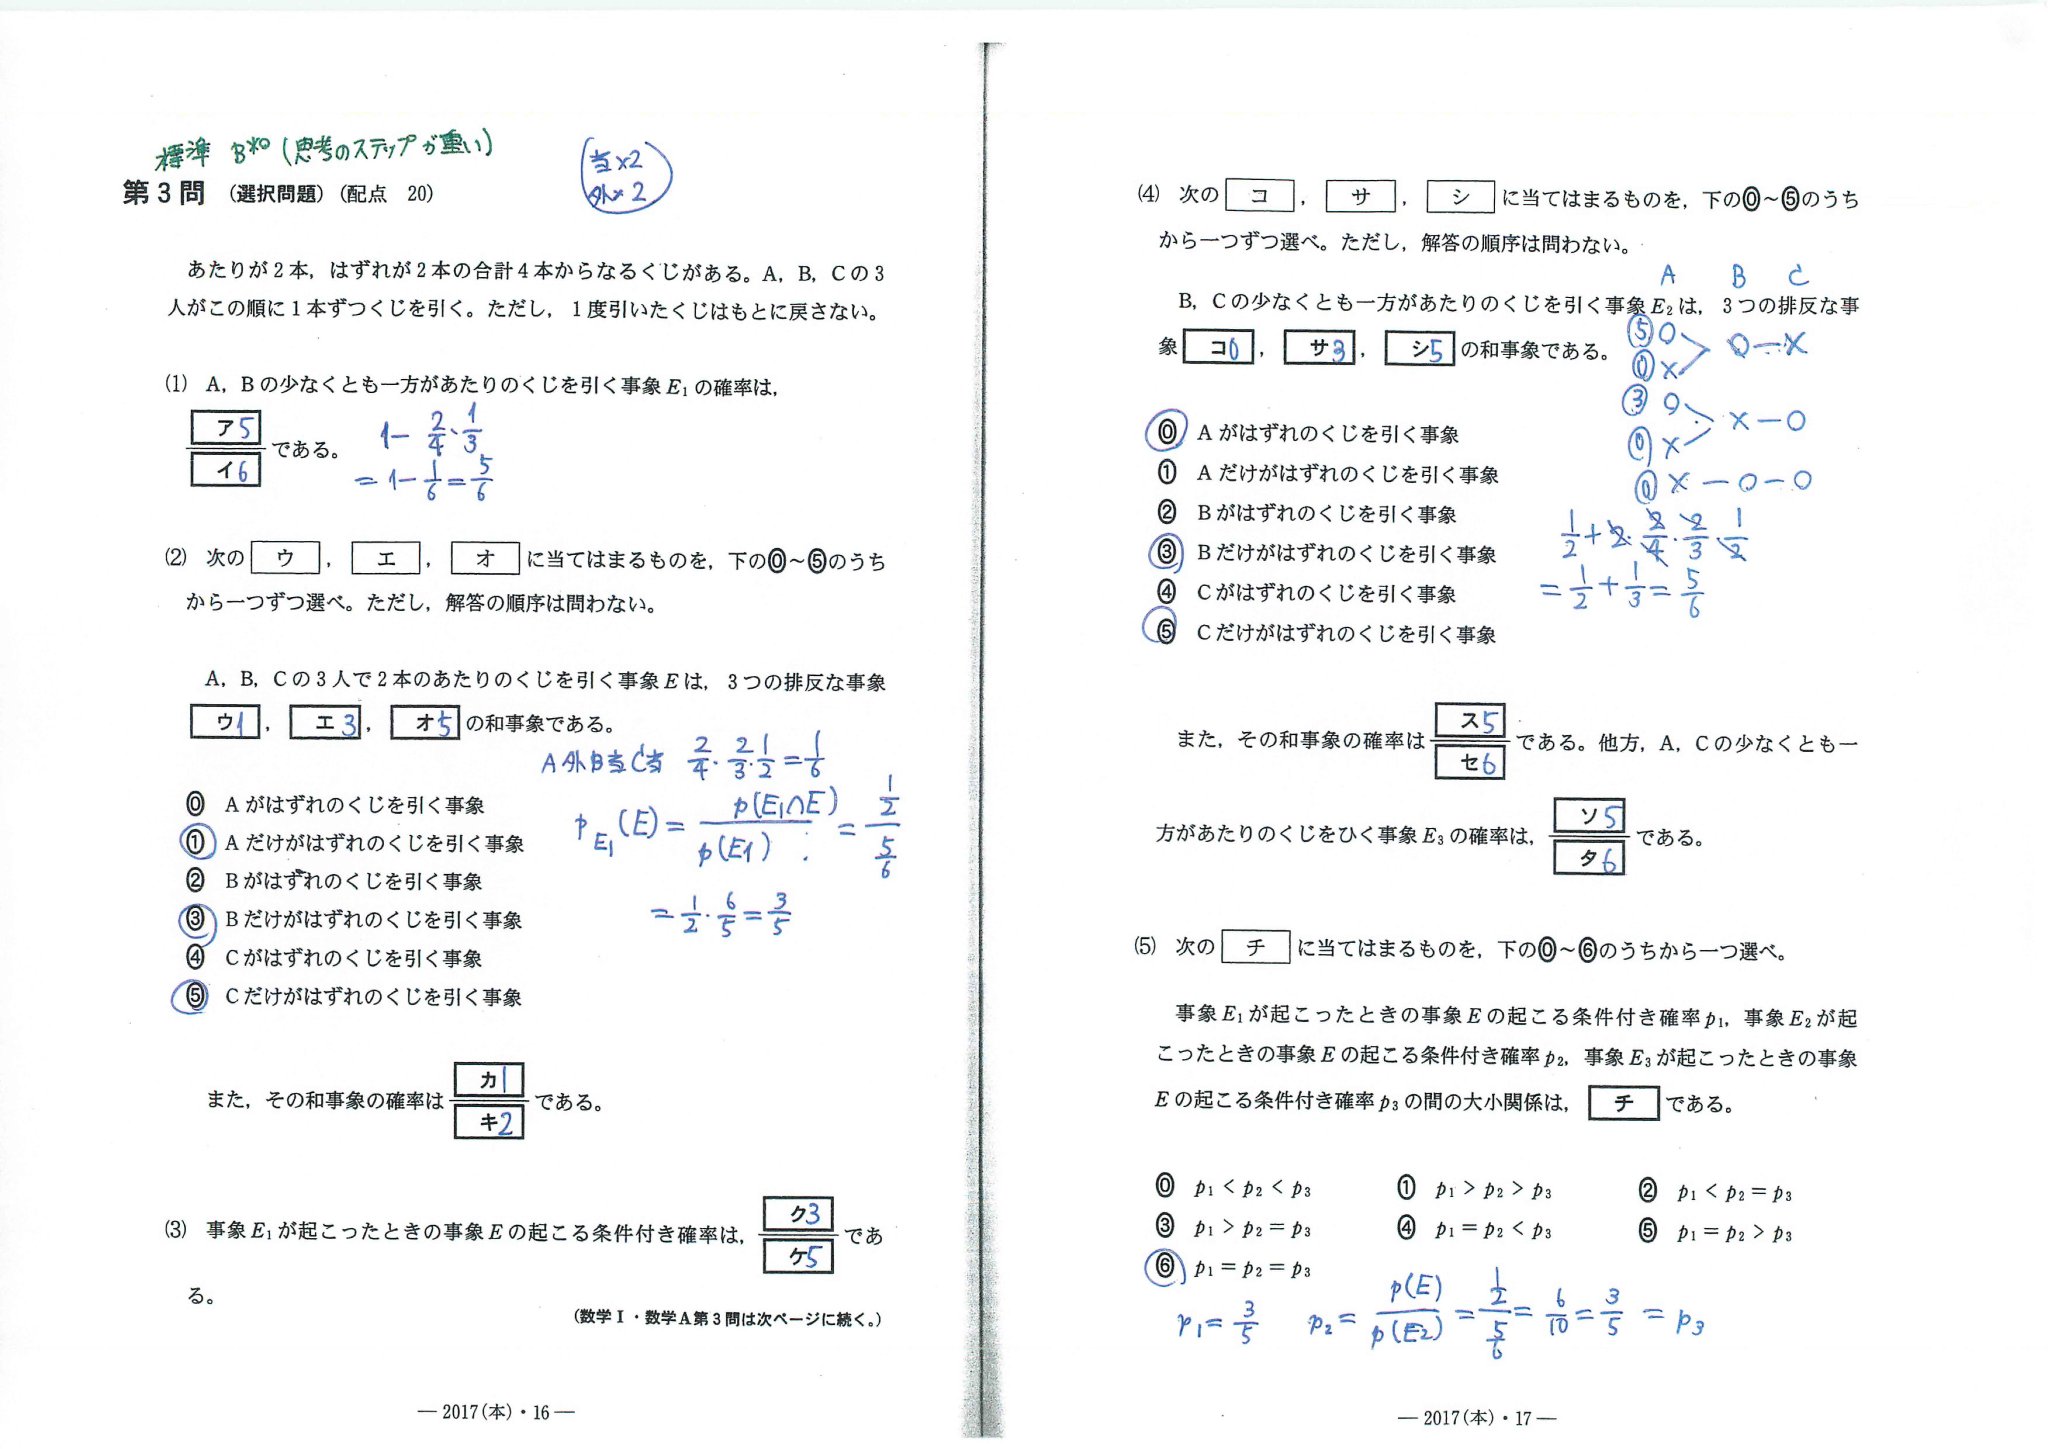 標準 B** (思考のステップが重い)
(当×2
外×2)
第3問 (選択問題)(配点 20)
あたりが2本，はずれが2本の合計4本からなるくじがある。A，B，Cの3
人がこの順に1本ずつくじを引く。ただし，1度引いたくじはもとに戻さない。
(1) A，Bの少なくとも一方があたりのくじを引く事象E₁の確率は，
ア5
イ6
である。
1 - 2/4・1/3
= 1 - 1/6 = 5/6
(2) 次の ウ ， エ ， オ に当てはまるものを，下の⓪～⑤のうち
から一つずつ選べ。ただし，解答の順序は問わない。
A，B，Cの3人で2本のあたりのくじを引く事象Eは，3つの排反な事象
ウ1 ， エ3 ， オ5 の和事象である。
A外B当C当 2/4・2/3・1/2 = 1/6
⓪ Aがはずれのくじを引く事象
① Aだけがはずれのくじを引く事象
② Bがはずれのくじを引く事象
③ Bだけがはずれのくじを引く事象
④ Cがはずれのくじを引く事象
⑤ Cだけがはずれのくじを引く事象
p E₁ (E) = p(E₁∩E) / p(E1) = 1/2 / 5/6
= 1/2・6/5 = 3/5
また，その和事象の確率は カ1 / キ2 である。
(3) 事象E₁が起こったときの事象Eの起こる条件付き確率は， ク3 / ケ5 であ
る。
(数学Ⅰ・数学A第3問は次ページに続く。)
— 2017(本)・16 —
(4) 次の コ ， サ ， シ に当てはまるものを，下の⓪～⑤のうち
から一つずつ選べ。ただし，解答の順序は問わない。
A B C
B，Cの少なくとも一方があたりのくじを引く事象E₂は，3つの排反な事
象 コ0 ， サ3 ， シ5 の和事象である。
⑤ ○
⓪ × > ○ — ×
③ ○
⓪ × > × — ○
⓪ × — ○ — ○
⓪ Aがはずれのくじを引く事象
① Aだけがはずれのくじを引く事象
② Bがはずれのくじを引く事象
③ Bだけがはずれのくじを引く事象
④ Cがはずれのくじを引く事象
⑤ Cだけがはずれのくじを引く事象
1/2 + 2・2/4・2/3・1/2
= 1/2 + 1/3 = 5/6
また，その和事象の確率は ス5 / セ6 である。他方，A，Cの少なくとも一
方があたりのくじをひく事象E₃の確率は， ソ5 / タ6 である。
(5) 次の チ に当てはまるものを，下の⓪～⑥のうちから一つ選べ。
事象E₁が起こったときの事象Eの起こる条件付き確率p₁，事象E₂が起
こったときの事象Eの起こる条件付き確率p₂，事象E₃が起こったときの事象
Eの起こる条件付き確率p₃の間の大小関係は， チ である。
⓪ p₁ < p₂ < p₃ ① p₁ > p₂ > p₃ ② p₁ < p₂ = p₃
③ p₁ > p₂ = p₃ ④ p₁ = p₂ < p₃ ⑤ p₁ = p₂ > p₃
⑥ p₁ = p₂ = p₃
p₁ = 3/5 p₂ = p(E) / p(E2) = 1/2 / 5/6 = 6/10 = 3/5 = p₃
— 2017(本)・17 —